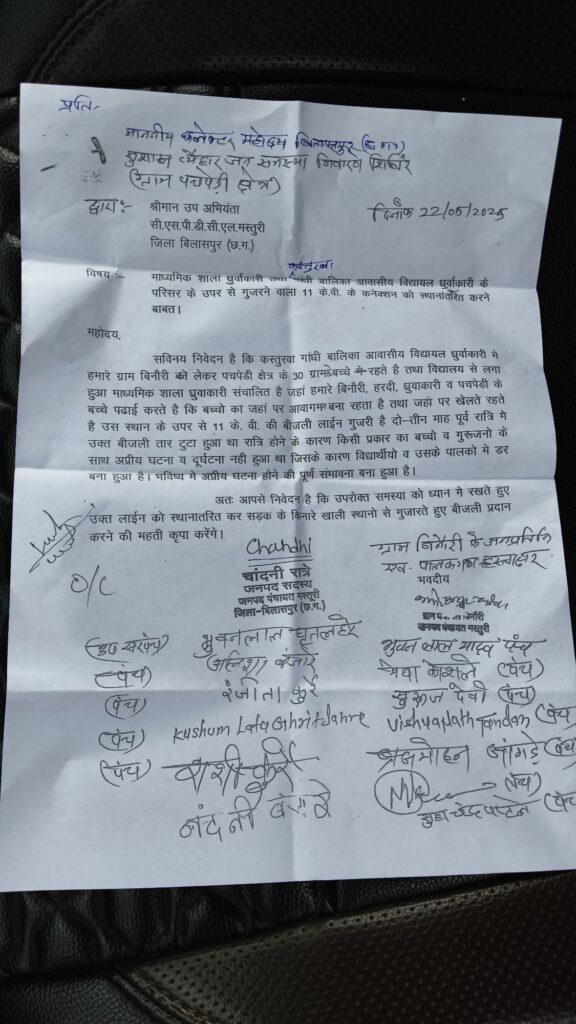 प्रति,
माननीय कलेक्टर महोदय बिलासपुर (छ.ग.)
सुशासन तिहार जन समस्या निवारण शिविर
(ग्राम पचपेड़ी क्षेत्र)
द्वारा :- श्रीमान उप अभियंता दिनांक 22/05/2025
सी.एस.पी.डी.सी.एल.मस्तुरी
जिला बिलासपुर (छ.ग.)
विषय :- माध्यमिक शाला ध्रुर्वाकारी तथा कस्तुरबा गांधी बालिका आवासीय विद्यायल ध्रुर्वाकारी के
परिसर के उपर से गुजरने वाला 11 के.वी. के कनेक्शन को स्थानातरित करने
बाबत।
महोदय,
सविनय निवेदन है कि कस्तुरवा गांधी बालिका आवासीय विद्यायल ध्रुर्वाकारी मे
हमारे ग्राम बिनौरी को लेकर पचपेड़ी क्षेत्र के 30 ग्राम के बच्चे रहते है तथा विद्यालय से लगा
हुआ माध्यमिक शाला ध्रुवाकारी संचालित है जहां हमारे बिनौरी, हरदी, ध्रुवाकारी व पचपेडी के
बच्चे पढाई करते है कि बच्चो का जहां पर आवागमन बना रहता है तथा जहां पर खेलते रहते
है उस स्थान के उपर से 11 के. वी. की बीजली लाईन गुजरी है दो–तीन माह पूर्व रात्रि मे
उक्त बीजली तार टुटा हुआ था रात्रि होने के कारण किसी प्रकार का बच्चो व गुरूजनो के
साथ अप्रीय घटना व दूर्घटना नही हुआ था जिसके कारण विद्यार्थीयो व उसके पालको मे डर
बना हुआ है। भविष्य मे अप्रीय घटना होने की पूर्ण संभावना बना हुआ है।
अतः आपसे निवेदन है कि उपरोक्त समस्या को ध्यान मे रखते हुए
उक्त लाईन को स्थानातरित कर सड़क के किनारे खाली स्थानो से गुजारते हुए बीजली प्रदान
करने की महती कृपा करेंगे।
Chandni ग्राम बिनौरी के जनप्रतिनिधि
चांदनी रात्रे एवं पालकगण हस्ताक्षर
जनपद सदस्य भवदीय
जनपद पंचायत मस्तूरी
जिला-बिलासपुर (छ.ग.) ग्राम बिनौरी
O/C जनपद पंचायत मस्तुरी
(उप सरपंच) भुवनलाल घृतलहरे भुवन लाल यादव पंच
(पंच) अनिशा बंजारे (पंच)
(पंच) रंजीता कुर्रे सुरूज देवी (पंच)
(पंच) Kushum Lata Ghritlahre Vishvanath Tandan (पंच)
(पंच) शशी कुर्रे ब्रजमोहन जांगड़े (पंच)
(पंच)
नंदनी (पंच)